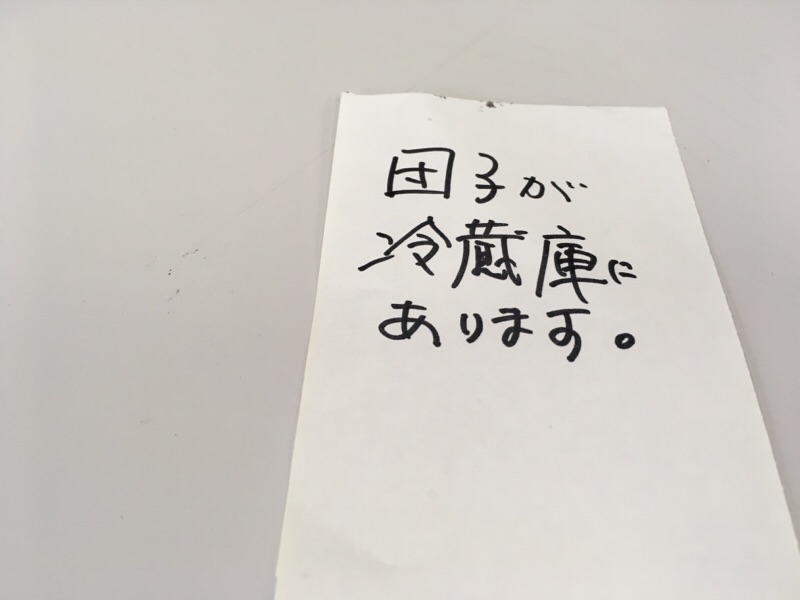 団子が
冷蔵庫に
あります。